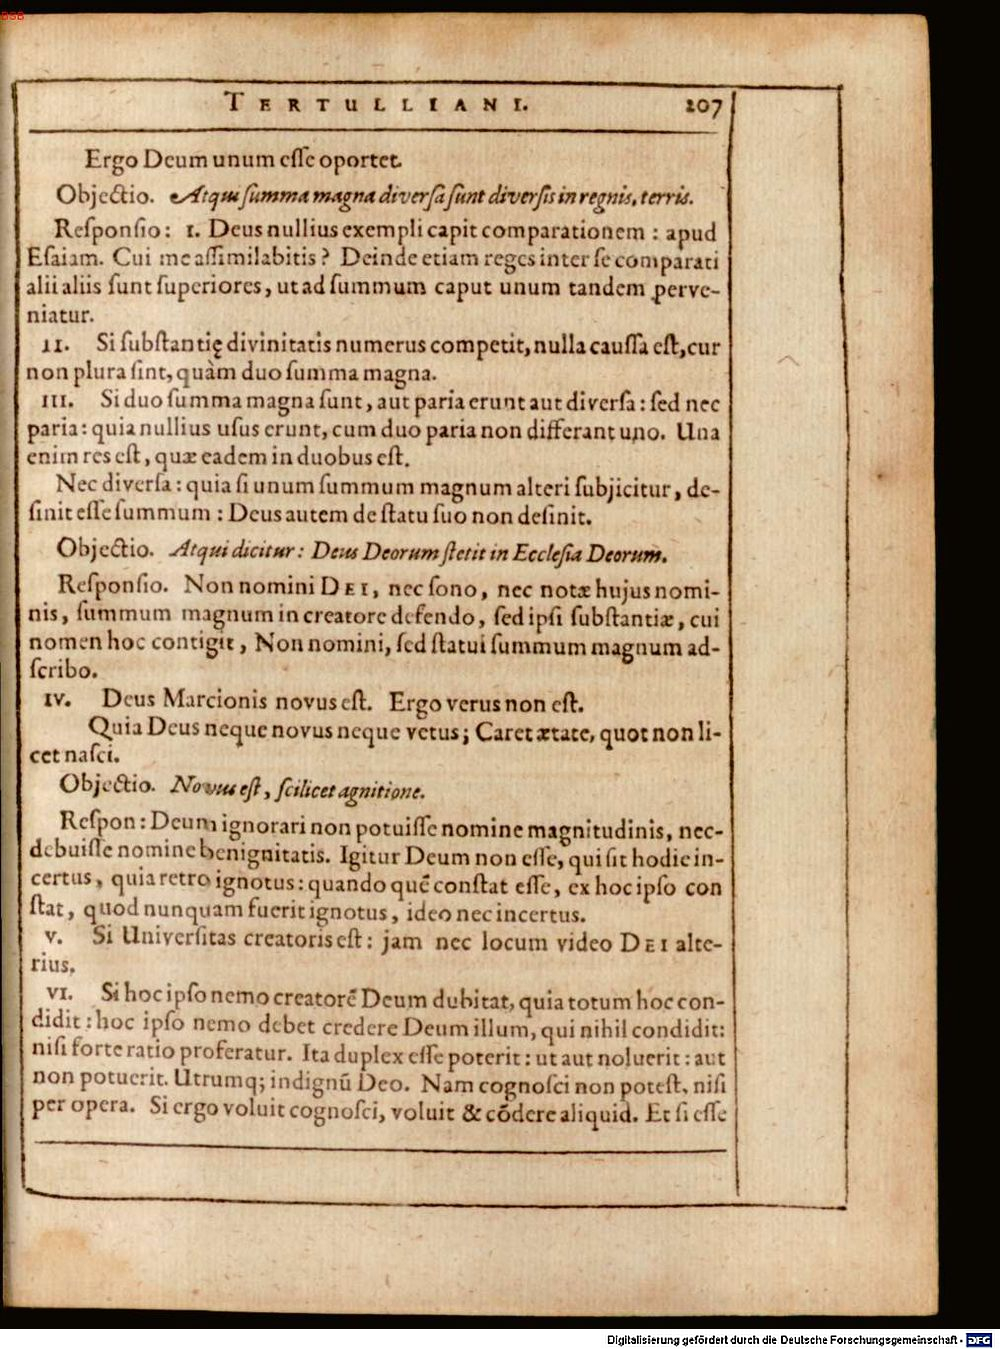 BSB
TERTULLIANI. 207
Ergo Deum unum eſſe oportet.
Objectio. Atqui ſumma magna diverſa ſunt diverſis in regnis, terris.
Reſponſio: 1. Deus nullius exempli capit comparationem : apud
Eſaiam. Cui me aſſimilabitis? Deinde etiam reges inter ſe comparati
alii aliis ſunt ſuperiores, ut ad ſummum caput unum tandem perve-
niatur.
II. Si ſubſtantię divinitatis numerus competit, nulla cauſſa eſt, cur
non plura ſint, quàm duo ſumma magna.
III. Si duo ſumma magna ſunt, aut paria erunt aut diverſa: ſed nec
paria: quia nullius uſus erunt, cum duo paria non differant uno. Una
enim res eſt, quæ eadem in duobus eſt.
Nec diverſa: quia ſi unum ſummum magnum alteri ſubjicitur, de-
ſinit eſſe ſummum : Deus autem de ſtatu ſuo non deſinit.
Objectio. Atqui dicitur: Deus Deorum ſtetit in Eccleſia Deorum.
Reſponſio. Non nomini DEI, nec ſono, nec notæ hujus nomi-
nis, ſummum magnum in creatore defendo, ſed ipſi ſubſtantiæ, cui
nomen hoc contigit, Non nomini, ſed ſtatui ſummum magnum ad-
ſcribo.
IV. Deus Marcionis novus eſt. Ergo verus non eſt.
Quia Deus neque novus neque vetus; Caret ætate, quot non li-
cet naſci.
Objectio. Novus eſt, ſcilicet agnitione.
Reſpon: Deum ignorari non potuiſſe nomine magnitudinis, nec-
debuiſſe nomine benignitatis. Igitur Deum non eſſe, qui ſit hodie in-
certus, quia retro ignotus: quando quẽ conſtat eſſe, ex hoc ipſo con
ſtat, quod nunquam fuerit ignotus, ideo nec incertus.
V. Si Univerſitas creatoris eſt: jam nec locum video DEI alte-
rius.
VI. Si hoc ipſo nemo creatorẽ Deum dubitat, quia totum hoc con-
didit: hoc ipſo nemo debet credere Deum illum, qui nihil condidit:
niſi forte ratio proferatur. Ita duplex eſſe poterit: ut aut noluerit: aut
non potuerit. Utrumq; indignũ Deo. Nam cognoſci non poteſt, niſi
per opera. Si ergo voluit cognoſci, voluit & cõdere aliquid. Et ſi eſſe
Digitalisierung gefördert durch die Deutsche Forschungsgemeinschaft - DFG